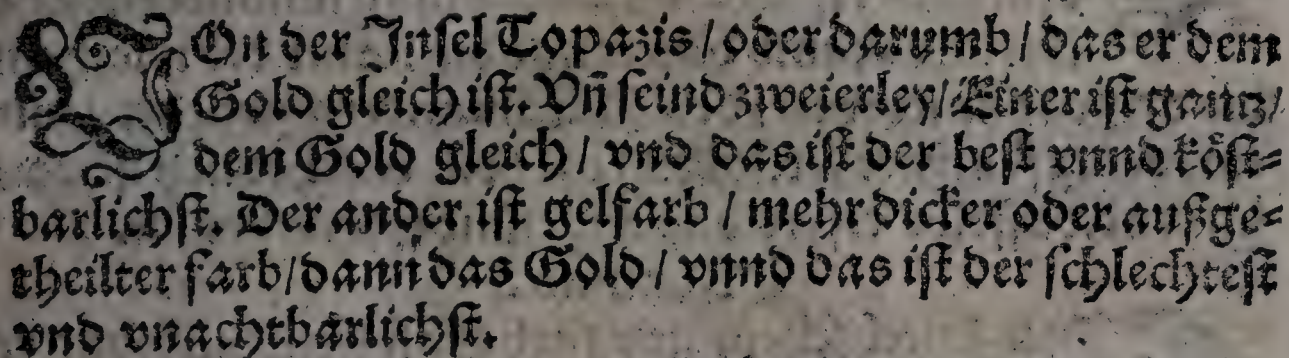 VOn der Inſel Topazis / oder darumb / das er dem
Gold gleich iſt. Vñ ſeind zweierley / Einer iſt gantz /
dem Gold gleich / vnd das iſt der beſt vnnd köſt⸗
barlichſt. Der ander iſt gelfarb / mehr dicker oder außge⸗
theilter farb / dann das Gold / vnnd das iſt der ſchlechteſt
vnd vnachtbarlichſt.